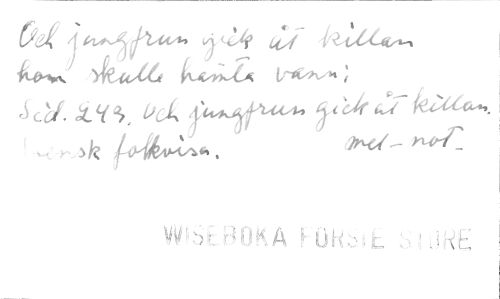 Och jungfrun gick åt killan
hon skulle hämta vann;
Sid. 249. Och jungfrun gick åt killan.
Svensk folkvisa. mel-not-
WISEBOKA FORSTE STORE